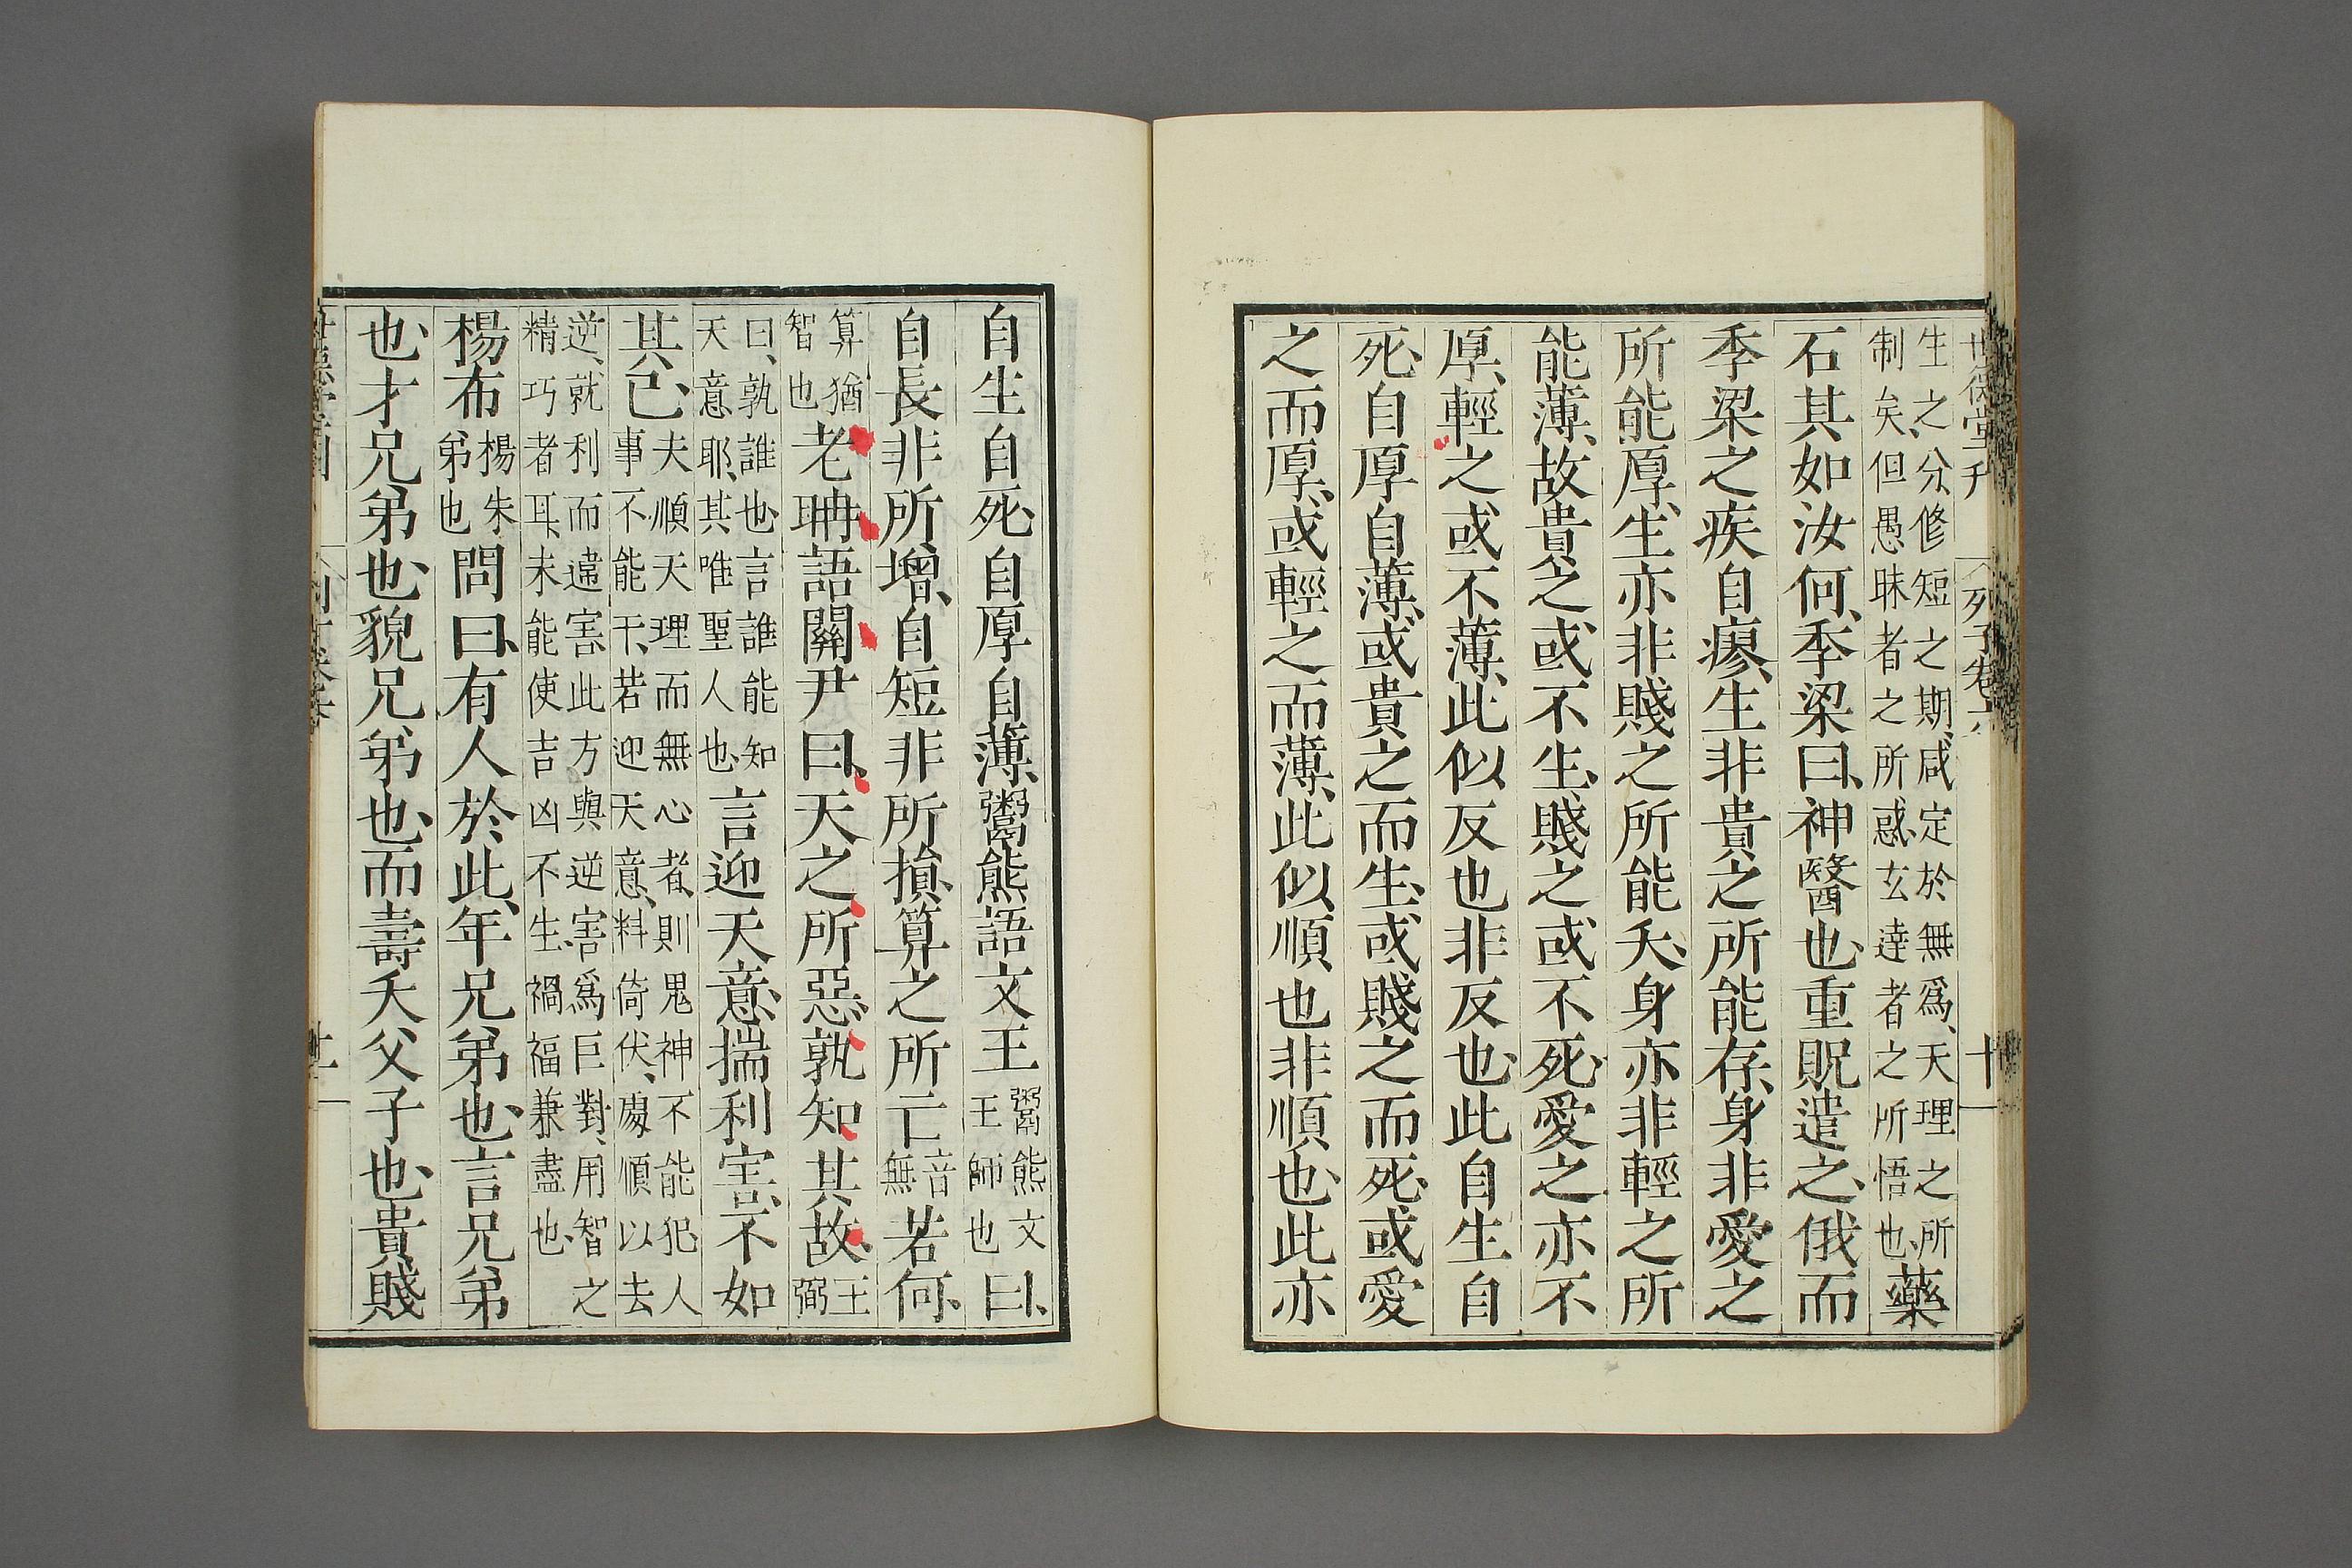 世德堂刊 列子卷六 十
生之分、修短之期、咸定於無爲、天理之所
制矣、但愚昧者之所惑、玄達者之所悟也、藥
石其如汝何、季梁曰、神醫也、重貺遣之、俄而
季梁之疾自瘳、生非貴之所能存、身非愛之
所能厚、生亦非賤之所能夭、身亦非輕之所
能薄、故貴之、或不生、賤之或不死、愛之、亦不
厚、輕之或不薄、此似反也非反也、此自生自
死、自厚自薄、或貴之而生、或賤之而死、或愛
之而厚、或輕之而薄、此似順也非順也、此亦
自生自死、自厚自薄、鬻熊語文王鬻熊文王師也曰、
自長非所增、自短非所損、算之所亡音無若何、
算猶智也老聃語關尹曰、天之所惡、孰知其故、王弼
曰、孰誰也、言誰能知天意耶、其唯聖人也、言迎天意、揣利害、不如
其已、夫順天理而無心者、則鬼神不能犯人事不能干、若迎天意、料倚伏、處順以去
逆、就利而違害、此方與逆害爲巨對、用智之精巧者耳、未能使吉凶不生禍福兼盡也、
楊布楊朱弟也問曰、有人於此、年兄弟也、言兄弟
也、才兄弟也、貌兄弟也、而壽夭父子也、貴賤